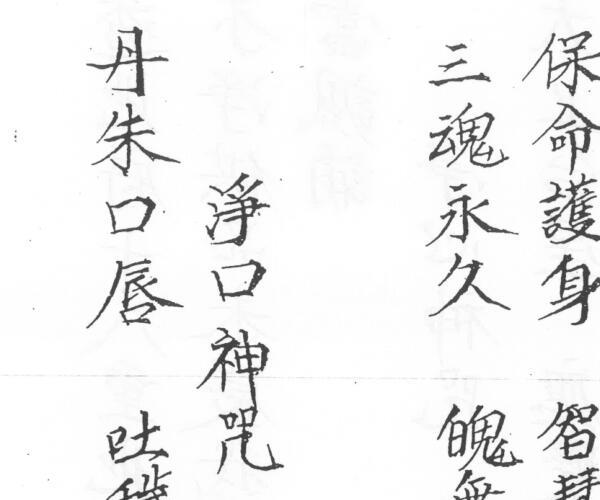 保命護身 智慧
三魂永久 魄無
淨口神咒
丹朱口唇 吐穢